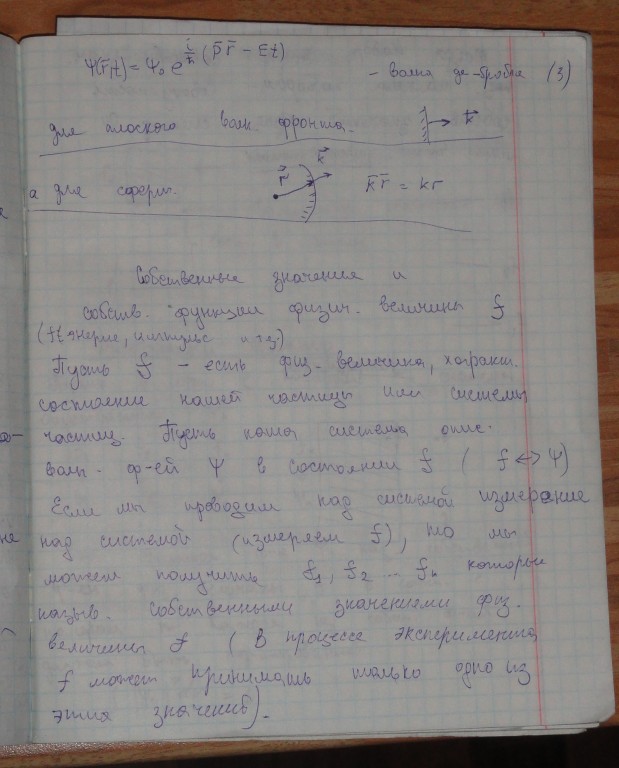 Ψ(r̄,t) = Ψ₀ e^{i/ħ (p̄r̄ − Et)} - волна де-Бройля (3)
для плоского волн. фронта. k⃗
а для сферич. r⃗ k⃗ k̄r̄ = kr
Собственные значения и
собств. функции физич. величины f
(f∈ энергие, импульс и т.з)
Пусть f – есть физ. величина, характ.
состояние нашей частицы или системы
частиц. Пусть наша система опис.
волн. ф-ей Ψ в состоянии f ( f ↔ Ψ)
Если мы проводим над системой измерание
над системой (измеряем f), то мы
можем получить f₁, f₂ ... fₙ которые
назыв. собственными значениями физ.
величины f ( В процессе эксперимента
f может принимать только одно из
этих значений).